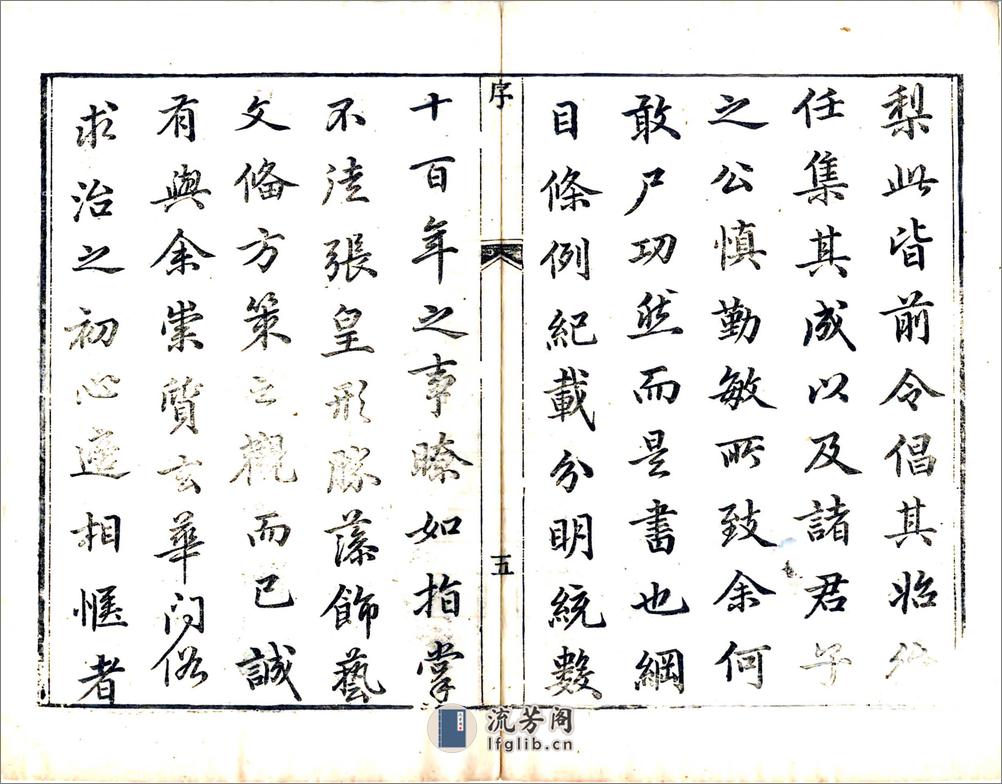 梨此皆前令倡其始終
任集其成以及諸君子
之公慎勤敏所致余何
敢尸功然而是書也綱
目條例紀載分明統數
序
五
十百年之事瞭如指掌
不徒張皇形勝藻飾藝
文備方策之觀而已誠
有與余崇質去華問俗
求治之初心適相愜者
流芳阁
lfglib.cn